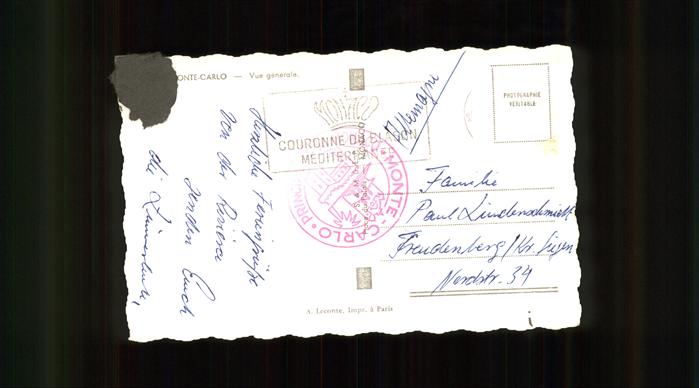 ONTE-CARLO — Vue générale.
PHOTOGRAPHIE
VÉRITABLE
MONACO
COURONNE DU BLASON
MEDITER
Allemagne
Herzliche Feriengrüße
von der Riviera
senden Euch
die
Familie
Paul Lindenschmidt
Freudenberg/Kr. Siegen
Nordstr. 34
MONTE-CARLO
PRINC
A. Leconte, Impr. à Paris